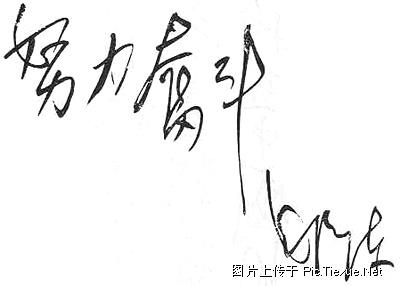 努力奋斗
图片上传于 Pic.Tiexue.Net